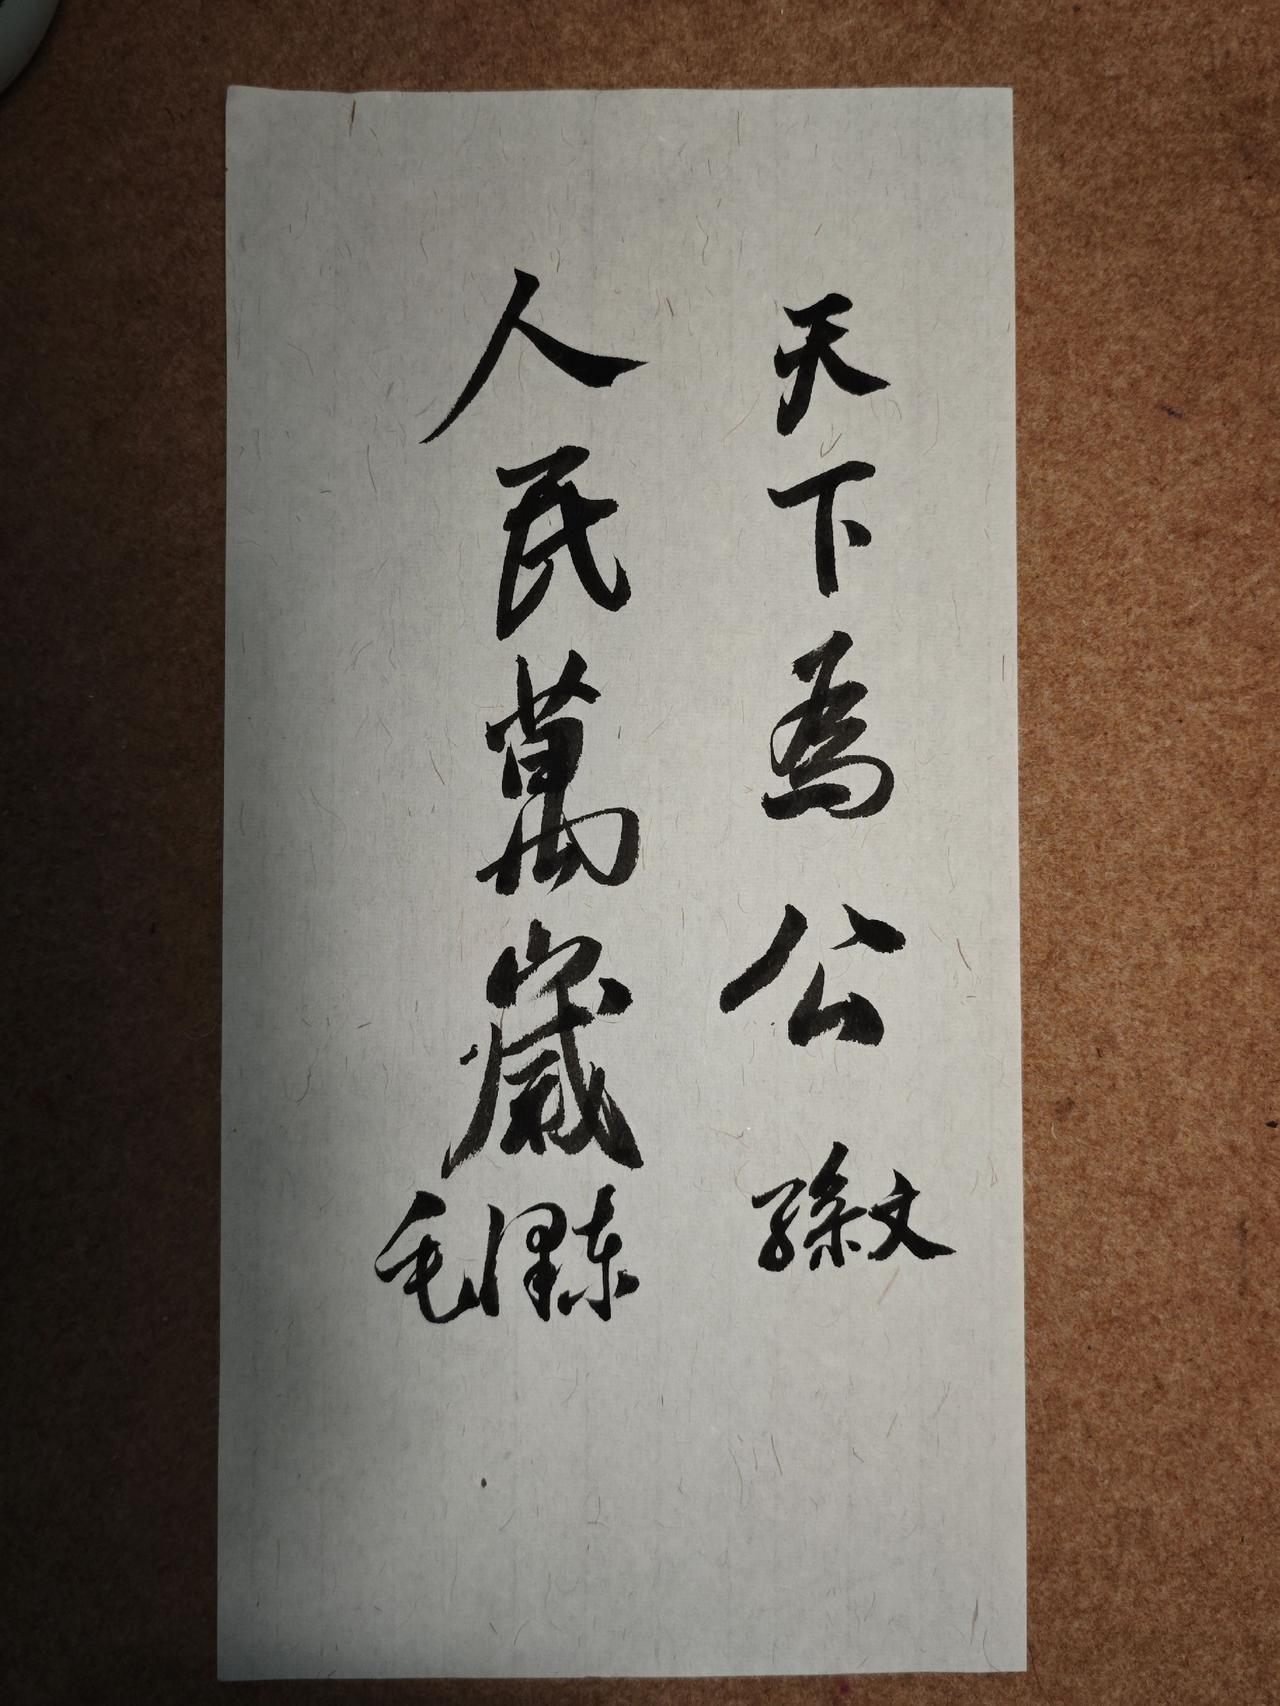 天下為公
孫文
人民萬歲
毛澤东